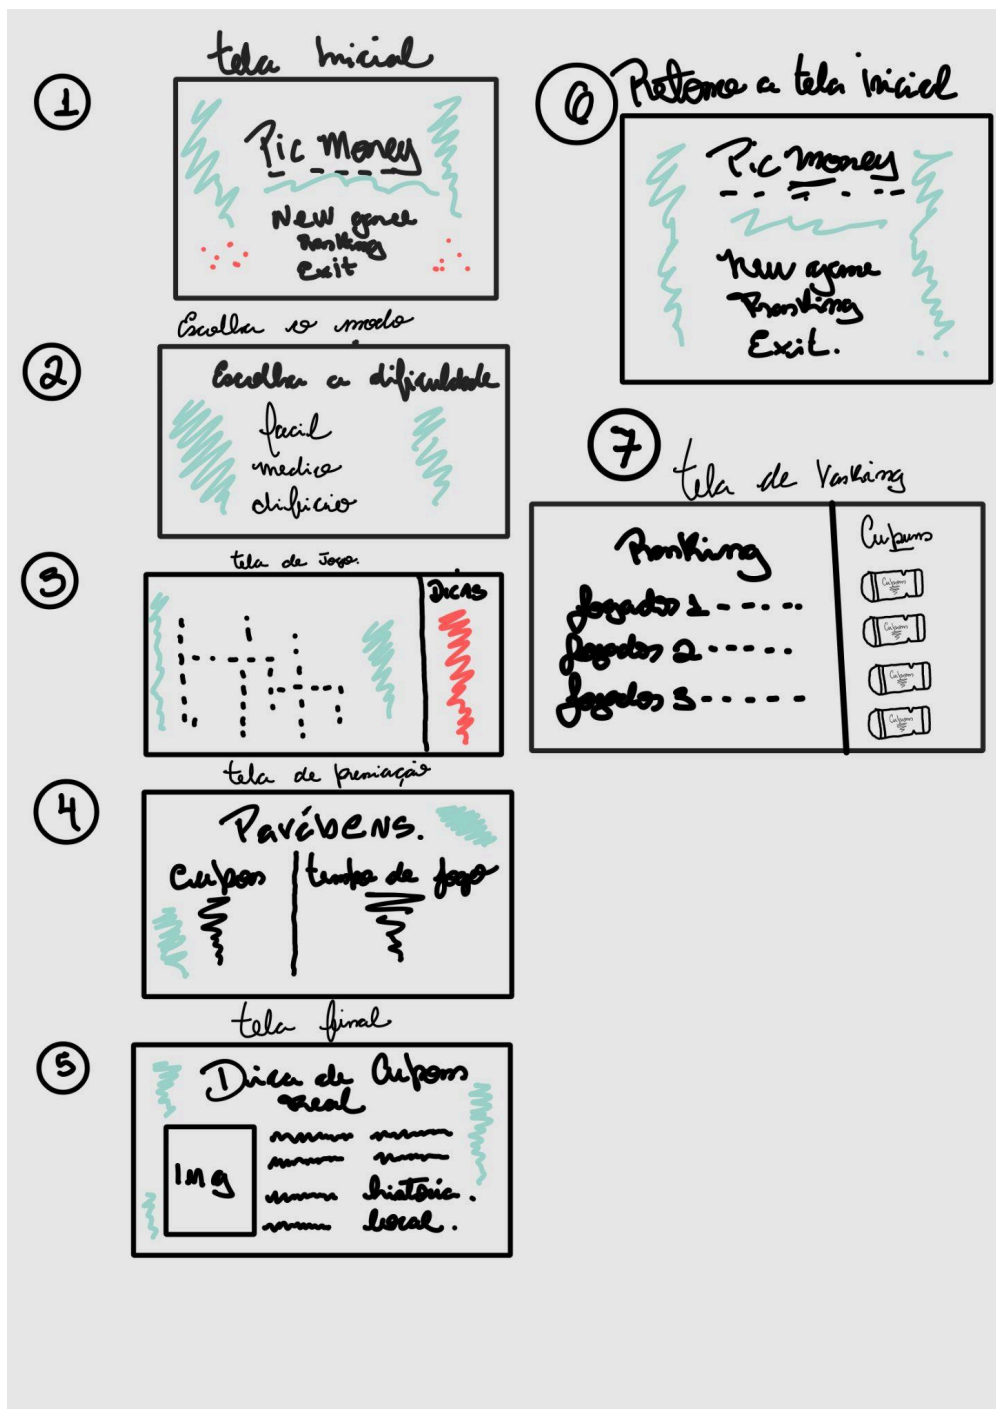 1
tela Inicial
Pic Money
New game
Ranking
Exit
2
Escolha o modo
Escolha a dificuldade
facil
medio
3
tela de Jogo.
DICAS
4
tela de premiação
Parábens.
Cupom
tempo de jogo
5
tela final
Dica de Cupom
real
Img
história.
local.
6
Retorno a tela inicial
Pic money
New game
Ranking
Exit.
7
tela de Ranking
Ranking
Jogador 1
Jogador 2
Jogador 3
Cupons
Cupons
Cupons
Cupons
Cupons